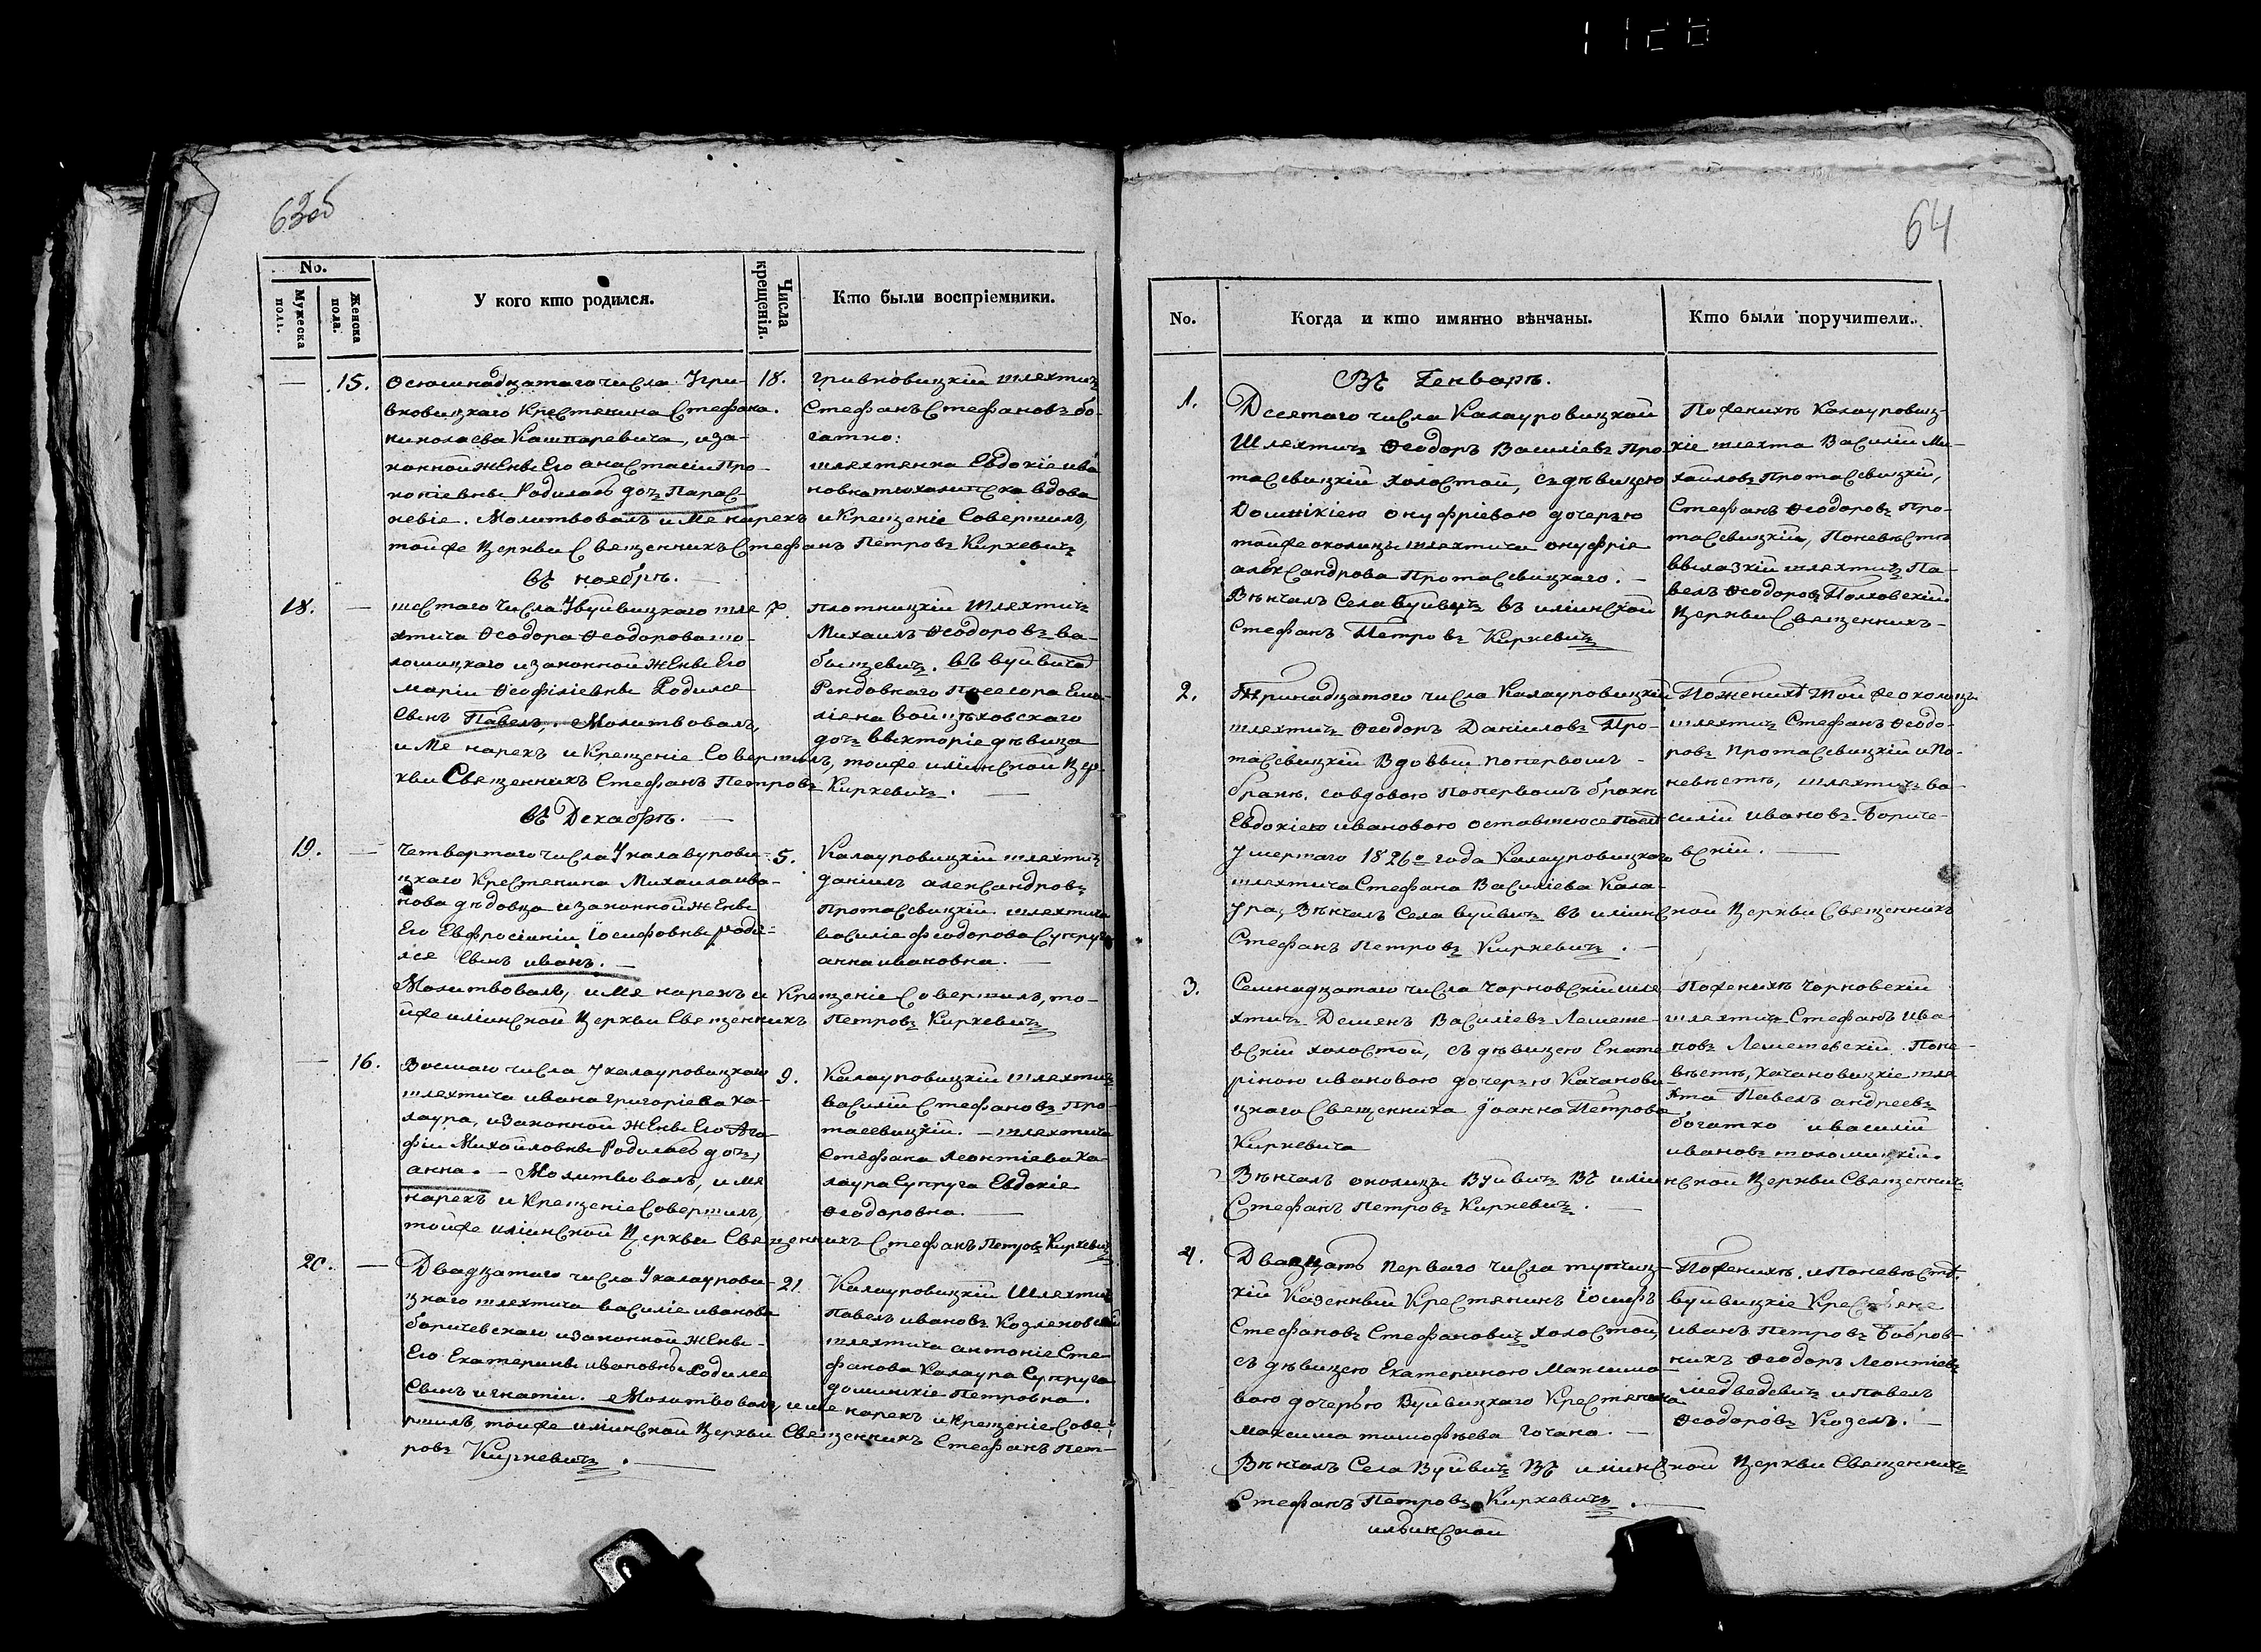 63об
No.
Мужеска полı.
Женска пола.
У кого кто родился.
Числа крещенія.
Кто были воспріемники.
15.
Осемнадцатаго числа Угри-
вковицкаго Крестянина Стефана
николаева Кашпаревича, иза-
конной жены Его анастасіи Про-
копіевны Родилась доч Парас-
кевіе. Молитвовалъ и Ме нарехъ и Крещеніе Совершилъ,
тойже Церкви Священникъ Стефанъ Петровъ Киркевичъ
18.
гривковицкій шляхтичъ
Стефанъ Стефановъ бо-
гатко:
шляхтянка Евдокіе ива
вдова
въ ноябрѣ.
18.
шестаго числа Убуйвицкаго шля
хтича Ѳеодора Ѳеодорова то-
ломицкаго изаконной жены Его
маріи Ѳеофіліевны Родилсе
Сынъ Павелъ, Молитвовалъ,
и Ме нарехъ и Крещеніе Совершилъ, тойже иліинской Цер-
кви Священникъ Стефанъ Петровъ Киркевичъ.
7.
плотницкій Шляхтичъ
Михаилъ Ѳеодоровъ ва-
бищевичъ. въ вуйвичах
Рендовнаго посесора Ема-
ліена войцѣховскаго
доч ввикторіе дѣвица
въ Декабрѣ.
19.
Четвертаго числа Укалаврови-
цкаго Крестянина Михаила ива-
нова дѣдовца изаконной жены
Его Евфросініи Іосифовны роди-
лсе Сынъ иванъ.
Молитвовалъ, имя нарехъ и Крещеніе Совершилъ, то-
йже иліинской Церкви Священникъ Петровъ Киркевичъ
5.
Калауровицкій шляхтич
даніилъ александровъ
Протасевицкій. шляхтича
василіе феодорова Супруга
анна ивановна.
16.
Восмаго числа Укалауровицкаго
шляхтича ивана григоріева ка-
лаура, изаконной жены Его Ага-
фіи Михайловны Родилась доч,
анна. Молитвовалъ, имя
нарехъ и Крещеніе Совершилъ,
тойже иліинской Церкви Священникъ Стефанъ Петровъ Киркевичъ
9.
Калауровицкій шляхтичъ
василій Стефановъ Про-
тасевицкій. — шляхтича
Стефана Леонтіева ка-
лаура Супруга Евдокіе
Ѳеодоровна.
20.
Двадцатаго числа Укалаурови-
цкаго шляхтича василіе иванова
боричевскаго изаконной жены
Его Екатерины ивановны Родилсе
Сынъ игнатій. Молитвовалъ, имя нарехъ и Крещеніе Сове-
ршилъ, тойже иліинской Церкви Священникъ Стефанъ Пет-
ровъ Киркевичъ.
21.
Калауровицкій Шляхтич
Павелъ ивановъ Козляковскій
шляхтича антоніе Сте-
фанова Калаура Супруга
доминикіе Петровна.
64
No.
Когда и кто имянно вѣнчаны.
Кто были поручители.
Въ Генварѣ.
1.
Десятаго числа Калауровицкой
Шляхтичъ Ѳеодоръ Василіевъ Про-
тасевицкій холостой, съ дѣвицею
Домникіею онуфріевою дочерью
тойже околицы шляхтича онуфріе
александрова Протасевицкаго.
Вѣнчалъ Села вуйвичъ въ иліинской Церкви Священникъ-
Стефанъ Петровъ Киркевичъ
Поженихѣ Калауровиц-
кіе шляхта Василій Ми-
хайловъ Протасевицкій,
Стефанъ Ѳеодоровъ Про-
тасевицкій, Поневѣстѣ
ввилазкій шляхтичъ Па-
велъ Ѳеодоровъ Полховскій
2.
Тринадцатого числа Калауровицкій
шляхтичъ Ѳеодоръ Даніиловъ Про-
тасевицкій Вдовый попервомъ
бракѣ, совдовою Попервомъ бракѣ
Евдокіею ивановою оставшеюсе После
Умершаго 1826го года Калауровицкаго
шляхтича Стефана Василіева Кала-
Ура, Вѣнчалъ Села вуйвичъ въ иліинской Церкви Священникъ
Стефанъ Петровъ Киркевичъ.
Поженихѣ Той же околицы
шляхтичъ Стефанъ Ѳеодо-
ровъ Протасевицкій и По-
невѣстѣ, шляхтичъ ва-
силій ивановъ Бориче-
вскій.
3.
Семнадцатаго числа Чорновскій шля
хтичъ Демянъ Василіевъ Лемеше-
вскій холостой, съ дѣвицею Екате
ріною ивановою дочерью Качанови-
цкаго Священника Іоанна Петрова
Киркевича
Вѣнчалъ околицы Вуйвичъ Въ иліинской Церкви Священникъ
Стефанъ Петровъ Киркевичъ.
Поженихѣ Чорновскій
шляхтичъ Стефанъ Ива-
новъ Лемешевскій. Поне-
вѣстѣ, Качановицкіе шля
хта Павелъ андреевъ
богатко и василій
ивановъ толомицкій.
4.
Двадцать перваго числа тупчиц-
кій Казенный Крестянинъ Іосифъ
Стефановъ Стефановичъ холостой,
съ дѣвицею Екатериною Максимо-
вою дочерью Вуйвицкаго Крестянина
Максима тимофѣева Гочана.
Вѣнчалъ Села Вуйвичъ Въ иліинской Церкви Священникъ
Стефанъ Петровъ Киркевичъ.
ильинской
Поженихѣ, и Поневѣстѣ,
вуйвицкіе Крестьяне
иванъ Петровъ Бобров-
никъ Ѳеодоръ Леонтіевъ
медведевичъ и павелъ
Ѳеодоровъ Козелъ.